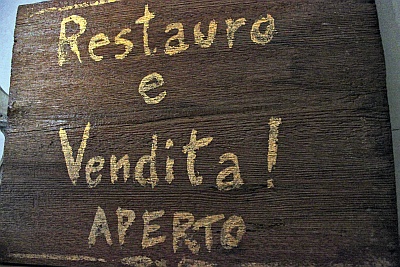 Restauro
e
Vendita!
APERTO